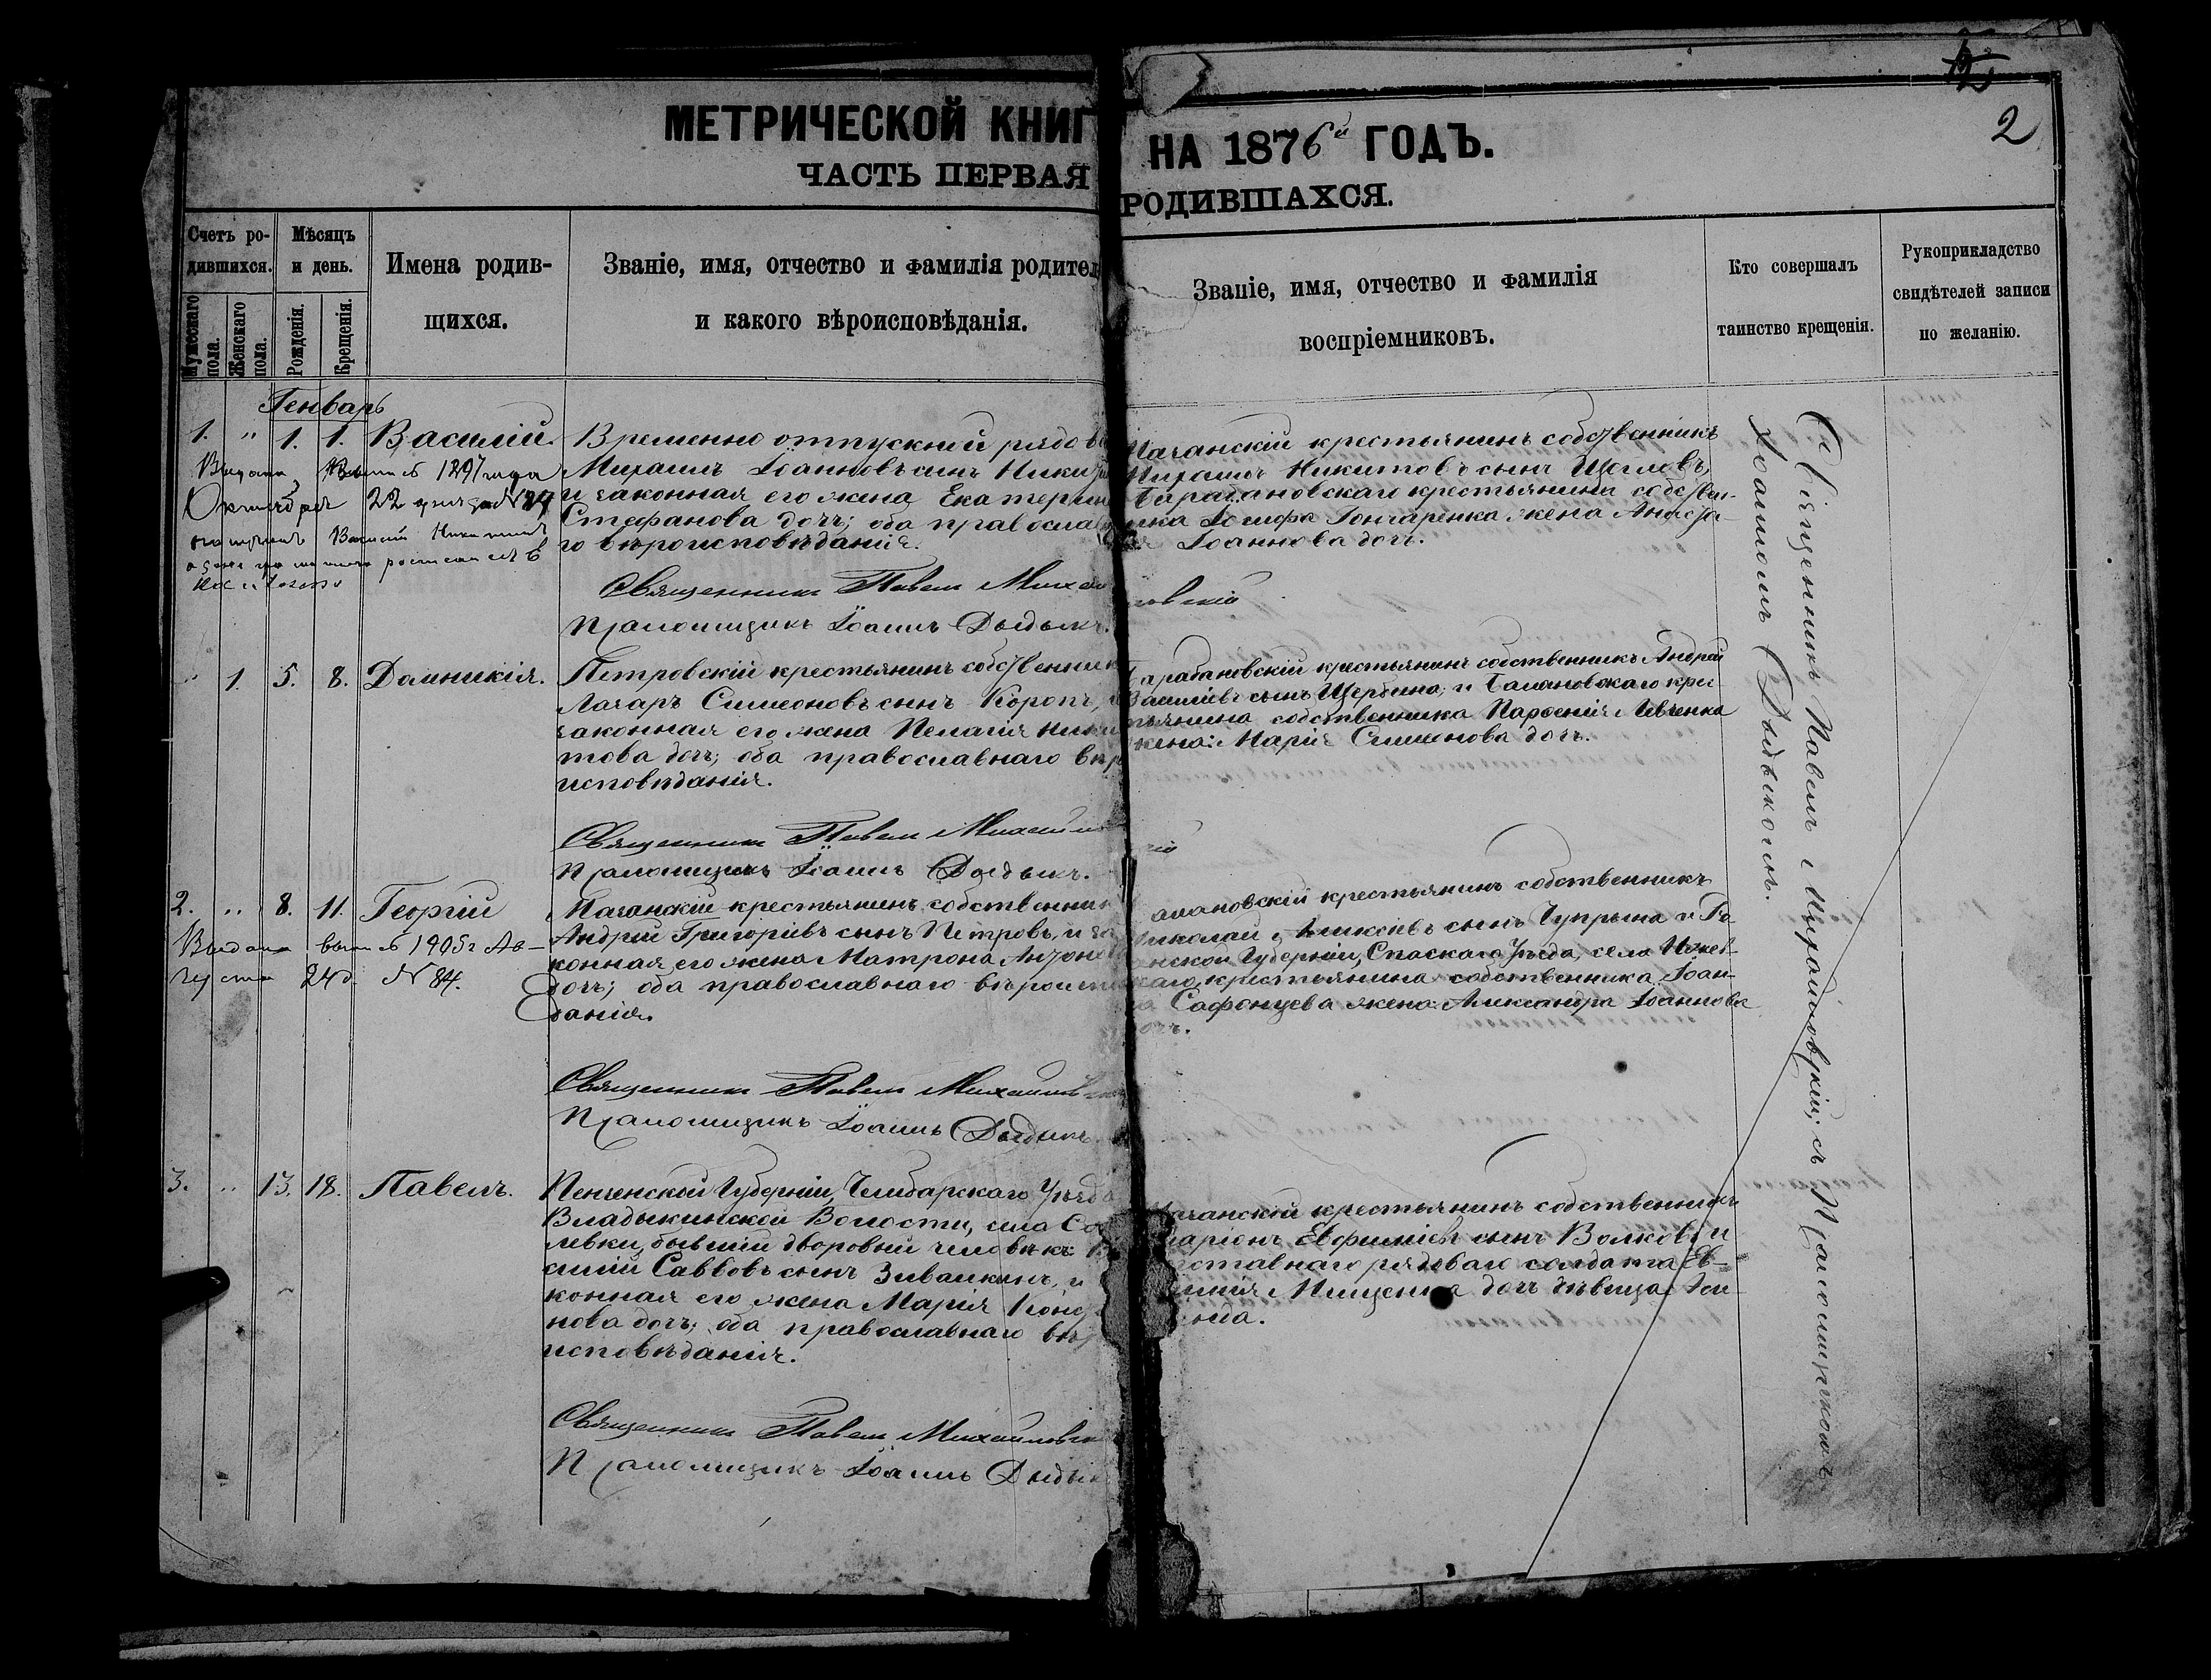 2
МЕТРИЧЕСКОЙ КНИГ
НА 1876й ГОДЪ.
ЧАСТЬ ПЕРВАЯ
РОДИВШАХСЯ.
Счетъ ро-
дившихся.
Мужескаго
пола.
Женскаго
пола.
Мѣсяцъ
и день.
Рожденія.
Крещенія.
Имена родив-
щихся.
Званіе, имя, отчество и фамилія родител
и какого вѣроисповѣданія.
Званіе, имя, отчество и фамилія
воспріемниковъ.
Кто совершалъ
таинство крещенія.
Рукоприкладство
свидѣтелей записи
по желанію.
Генварь
1. " 1. 1. Василій.
Временно отпускной рядов
Михаилъ Іоанновъ сынъ Ники
и законная его жена Екатерин
Стефанова дочь; оба православ
го вѣроисповѣданія.
Священникъ Павелъ Михаи
Паламщикъ Іоаннъ Дыдыкъ.
крестьянинъ собственникъ
Никитовъ сынъ Щегловъ,
Барабановскаго крестьянина собствен-
ника Іосифа Гончаренка жена Анаста-
Іоаннова дочь.
ловскій
Октября 22 дня за № 
" 1. 5. 8. Домникія.
Петровскій крестьянинъ собственник
Лазарь Симеоновъ сынъ Коропъ,
законная его жена Пелагія Ники
това дочь; оба православнаго вѣр
исповѣданія.
Священникъ Павелъ Михаилов
Паламщикъ Іоаннъ Дыдыкъ.
Барабановскій крестьянинъ собственникъ Андрей
Василіевъ сынъ Щербина; и Балановскаго крес
тьянина собственника Парѳенія Левченка
жена: Марія Симеонова дочь.
2. " 8. 11. Георгій
Выдана выпись 1905 г Ав-
густа 24 д. № 84.
крестьянинъ собственник
Андрей Григоріевъ сынъ Петровъ, и за
конная его жена Матрона Антоно
дочь; оба православнаго вѣроиспо
данія.
Священникъ Павелъ Михаиловс
Паламщикъ Іоаннъ Дыдыкъ.
алановскій крестьянинъ собственникъ
Николай Алексіевъ сынъ Чупрына и
нской Губерніи, Спаскаго Уѣзда, села
крестьянина собственника Іоан-
Сафонцева жена: Александра Іоаннова
дочь.
3. " 13. 18. Павелъ.
Пензенской Губерніи, Чембарскаго Уѣзда
Владыкинской Волости, села Со
левки, бывшій дворовый человѣкъ: Ва
силій Саввовъ сынъ Зивалкинъ, и
конная его жена Марія Конд
нова дочь; оба православнаго вѣр
исповѣданія.
Священникъ Павелъ Михаиловск
Паламщикъ Іоаннъ Дыдык
крестьянинъ собственникъ
ларіонъ Евфиміевъ сынъ Волковъ и
отставнаго рядоваго солдата Ев-
дочь дѣвица
Священникъ Павелъ Михайловскій; съ Паламщикомъ
Іоанномъ Дыдыкомъ.